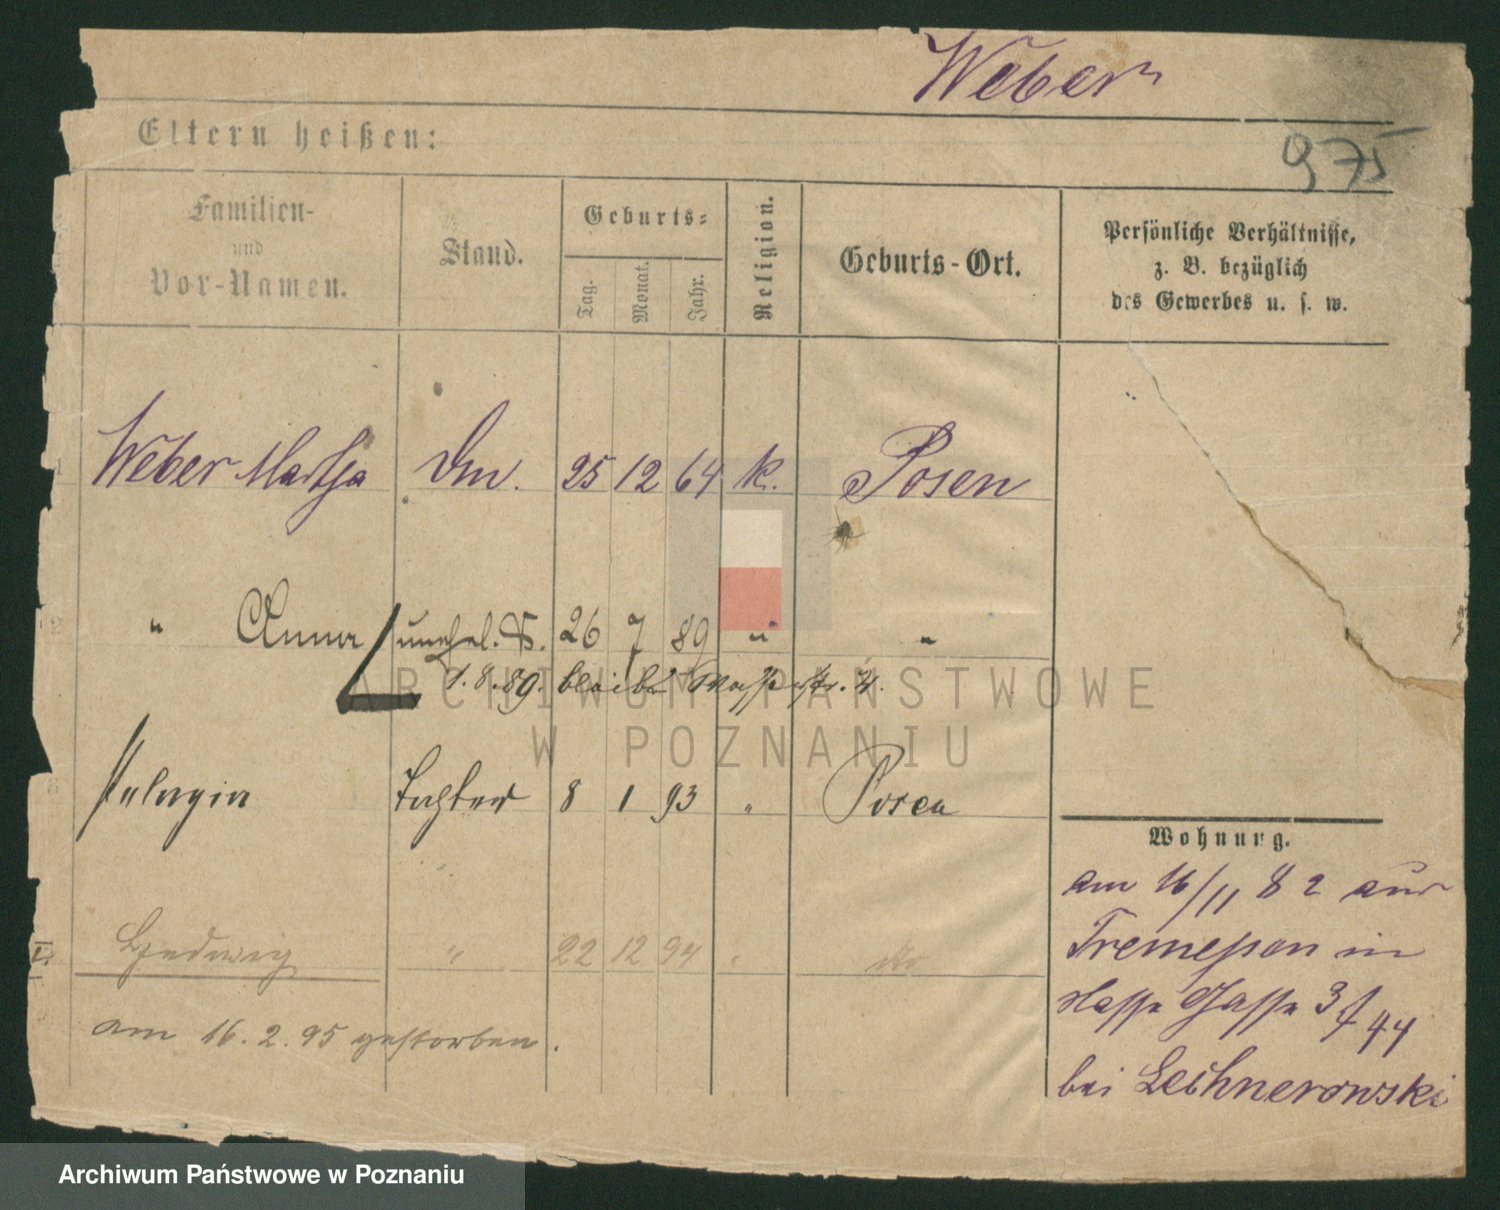 Weber
975
Eltern heißen:
Familien-
und
Vor-Namen.
Stand.
Geburts-
Tag.
Monat.
Jahr.
Religion.
Geburts-Ort.
Persönliche Verhältnisse,
z. B. bezüglich
des Gewerbes u. s. w.
Weber Martha Dm. 25 12 64 k. Posen
" Anna unehel. T. 26 7 89 " "
1. 8. 89. bleibt
Pelagia Tochter 8 1 93 " Posen
Hedwig " 22 12 94 " do
am 16. 2. 95 gestorben.
Wohnung.
am 16/11 82 aus
Tremessen in
Gasse 3
bei Lechnerowski
ARCHIWUM PAŃSTWOWE
W POZNANIU
Archiwum Państwowe w Poznaniu